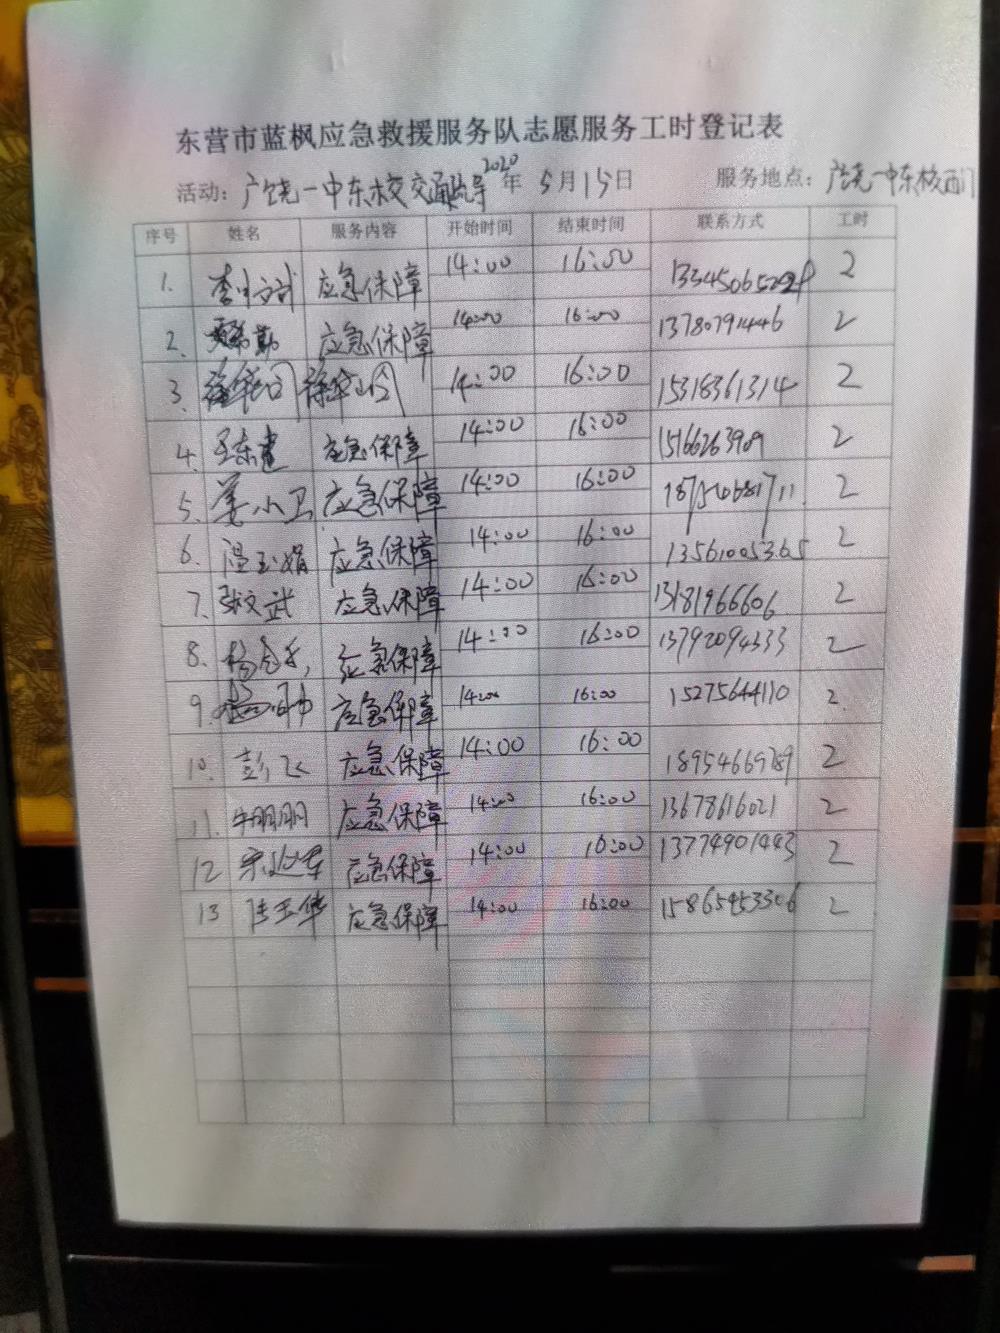 东营市蓝枫应急救援服务队志愿服务工时登记表
活动：广饶一中东校交通疏导 2020年 5月15日 服务地点：广饶一中东校西门
序号 姓名 服务内容 开始时间 结束时间 联系方式 工时
1. 李 应急保障 14:00 16:00 2
2. 应急保障 14:00 16:00 13780791446 2
3. 14:00 16:00 15318361314 2
4. 王东建 应急保障 14:00 16:00 15166263989 2
5. 姜小卫 应急保障 14:00 16:00 2
6. 温玉娟 应急保障 14:00 16:00 13561005365 2
7. 张文武 应急保障 14:00 16:00 13181966606 2
8. 杨 应急保障 14:00 16:00 13792094333 2
9. 应急保障 14:00 16:00 15275644110 2.
10. 彭飞 应急保障 14:00 16:00 18954669789 2
11. 牛朋朋 应急保障 14:00 16:00 13678616021 2
12 宋延华 应急保障 14:00 16:00 13774901443 2
13 陈玉华 应急保障 14:00 16:00 15865453306 2